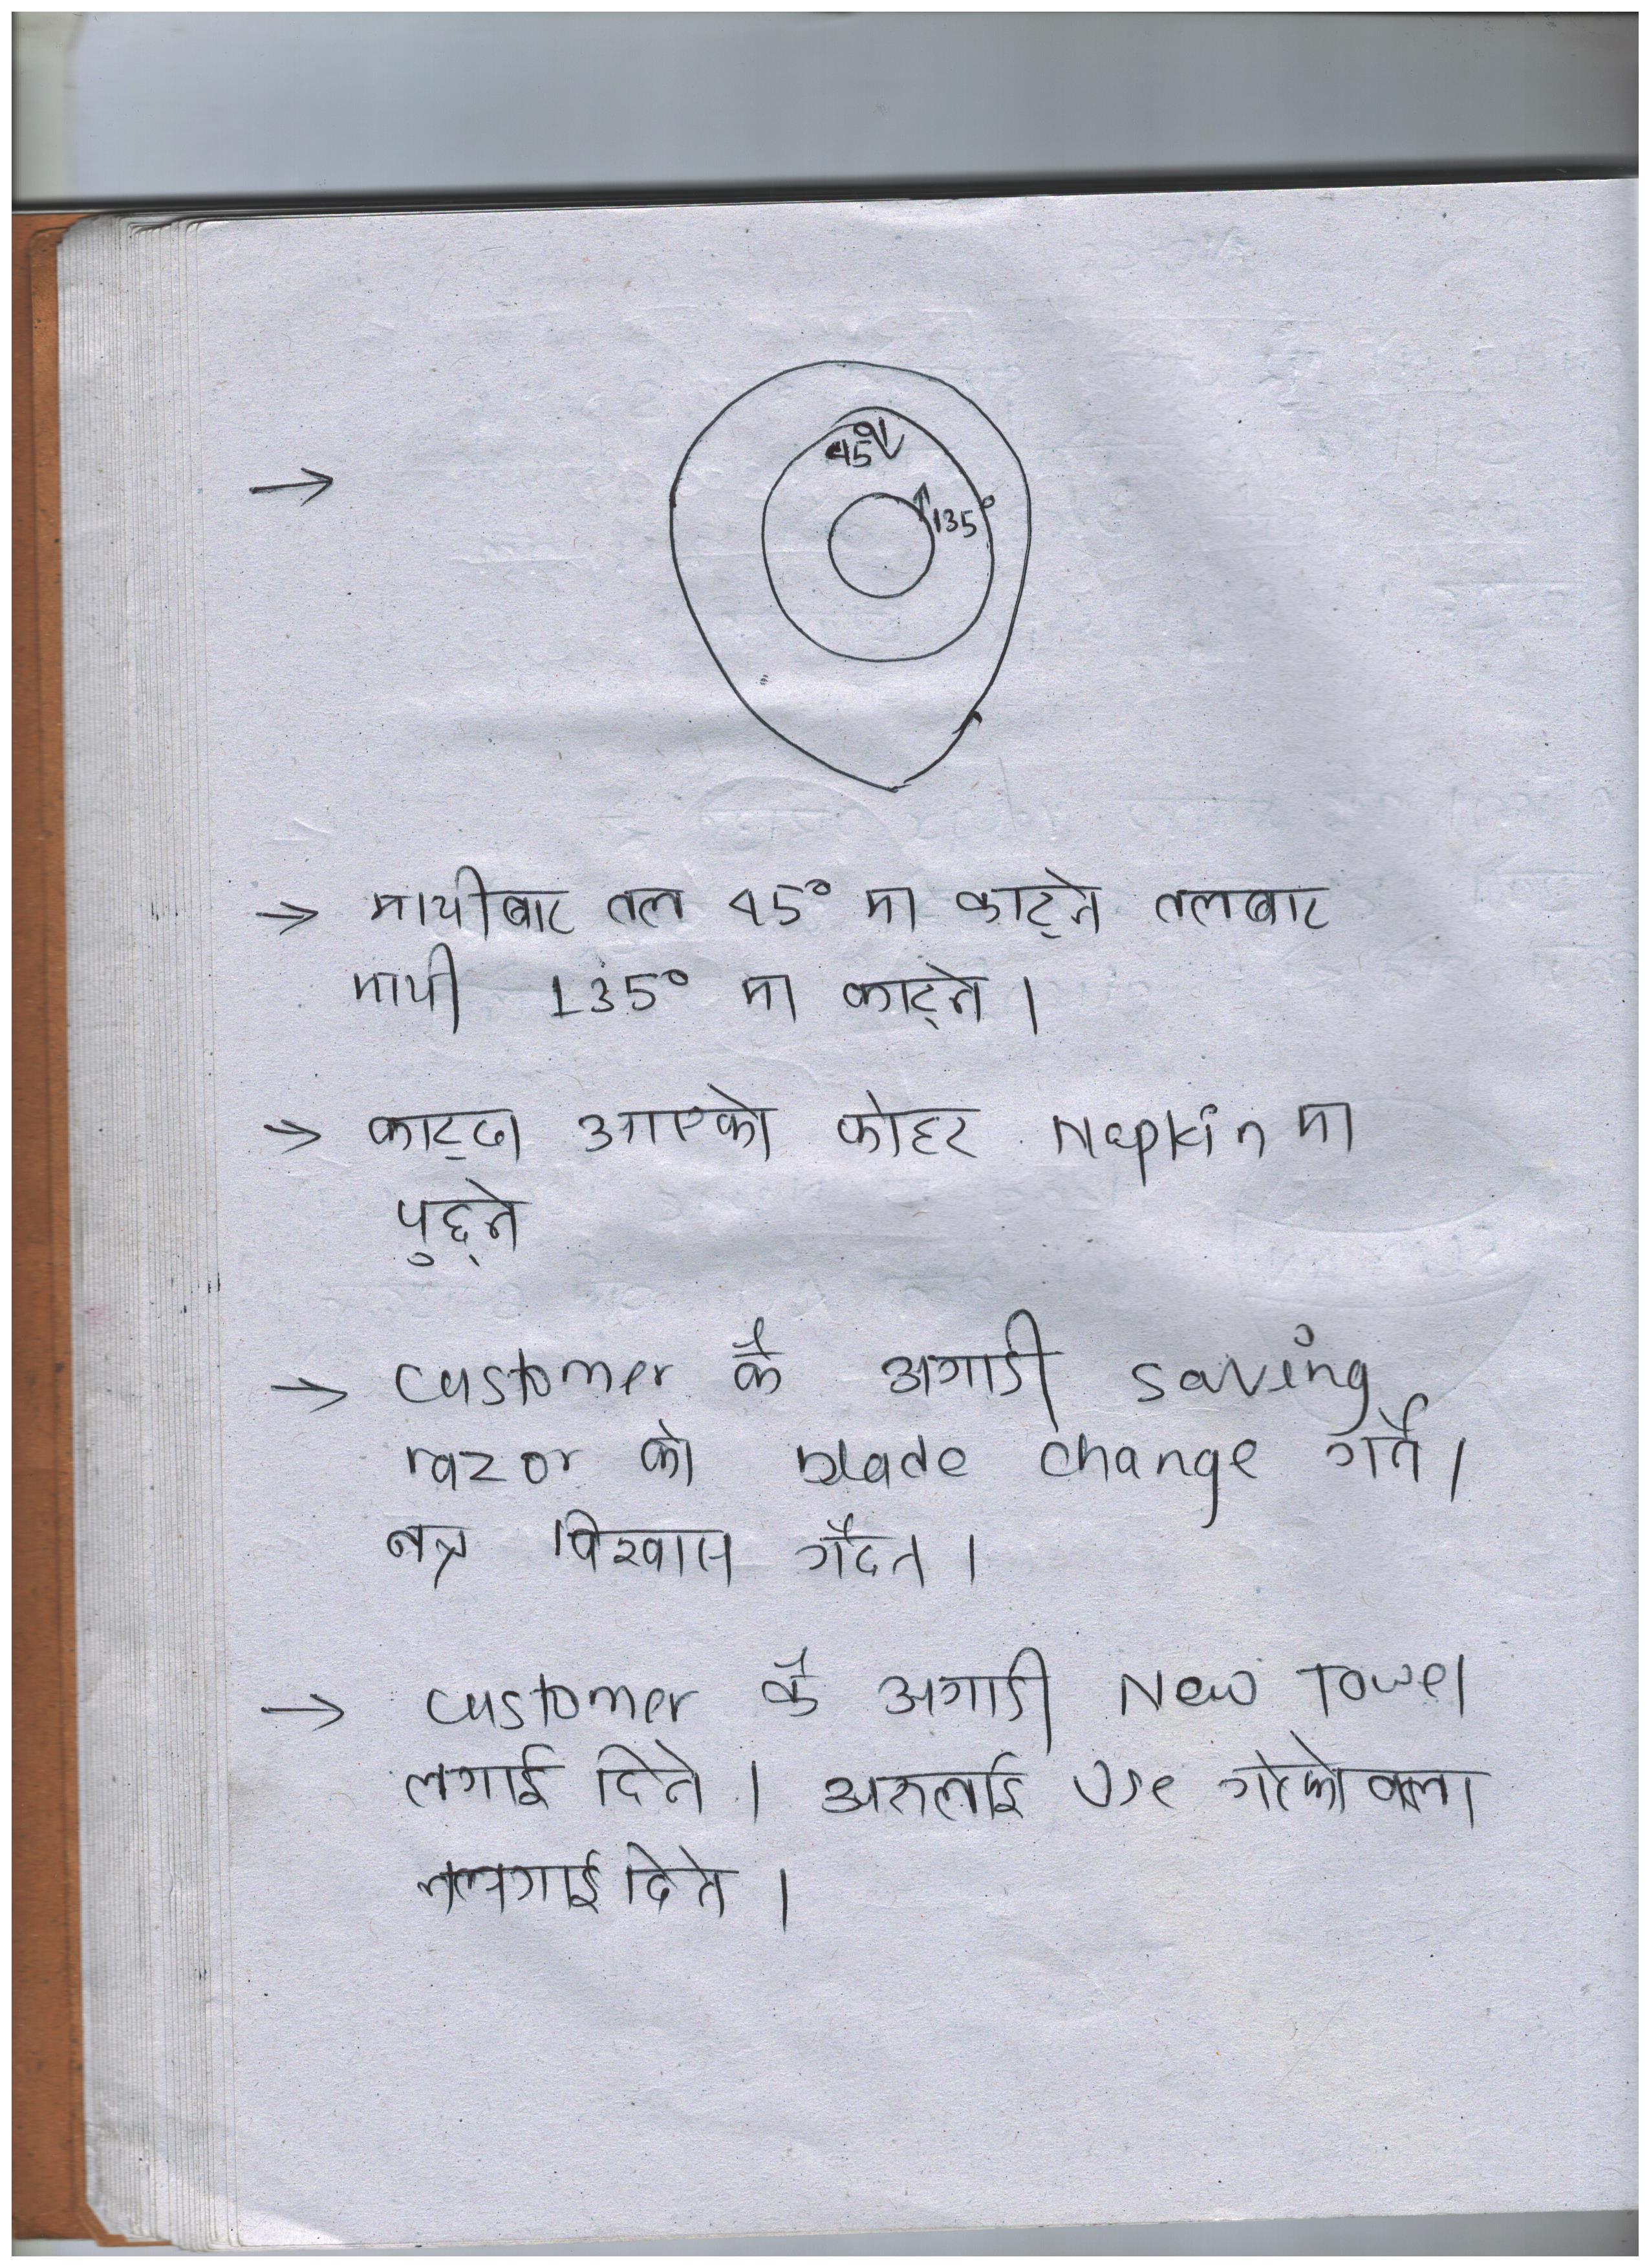 45°
135°
→ माथीबाट तल 45° मा काट्ने तलबाट
माथी 135° मा काट्ने ।
→ काट्दा आएको फोहर Nepkin मा
पुछ्ने
→ customer कै अगाडी saving
razor को blade change गर्ने ।
नत्र विश्वास गर्दैन ।
→ customer कै अगाडी New Towel
लगाई दिने । अरुलाई Use गरेको वाला
नलगाई दिने ।